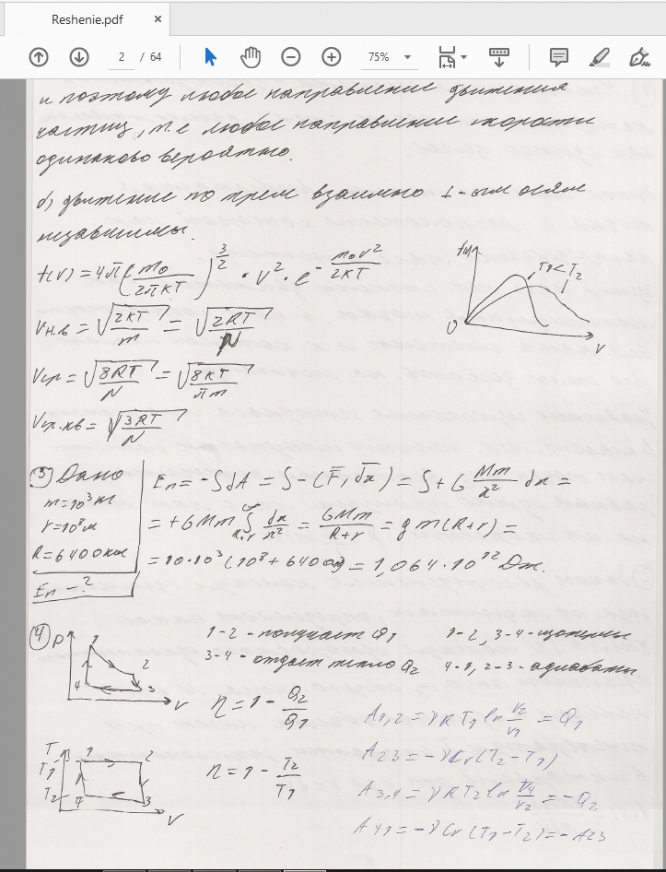 Reshenie.pdf ×
2 / 64 75%
и поэтому любое направление движения
частиц, т.е любое направление скорости
одинаково вероятно.
б) движение по трем взаимно ⊥-ым осям
независимы.
f(v) = 4π(m₀/2πkT)^(3/2) · v² · e^(-m₀v²/2kT)
f(v) T₁<T₂
0 v
Vн.в = √(2kT/m) = √(2RT/μ)
Vср = √(8RT/N) = √(8kT/πm)
Vср.кв = √(3RT/N)
③ Дано
m=10³кг
r=10⁸м
R=6400км
Eп - ?
Eп = -∫dA = ∫-(F̄, d̄x) = ∫+G Mm/x² dx =
= +GMm ∫_(R+r)^∞ dx/x² = GMm/(R+r) = gm(R+r) =
= 10·10³(10⁸+6400) = 1,064·10¹² Дж.
④ P 1 2 3 4 V
1-2 - получает Q₁
3-4 - отдает тепло Q₂
1-2, 3-4 - изотермы
4-1, 2-3 - адиабаты
η = 1 - Q₂/Q₁
T T₁ T₂ 1 2 3 4 V
η = 1 - T₂/T₁
A₁,₂ = νRT₁ ln V₂/V₁ = Q₁
A₂₃ = -νCv(T₂-T₁)
A₃,₄ = νRT₂ ln V₄/V₂ = -Q₂
A₄₁ = -νCv(T₁-T₂) = -A₂₃